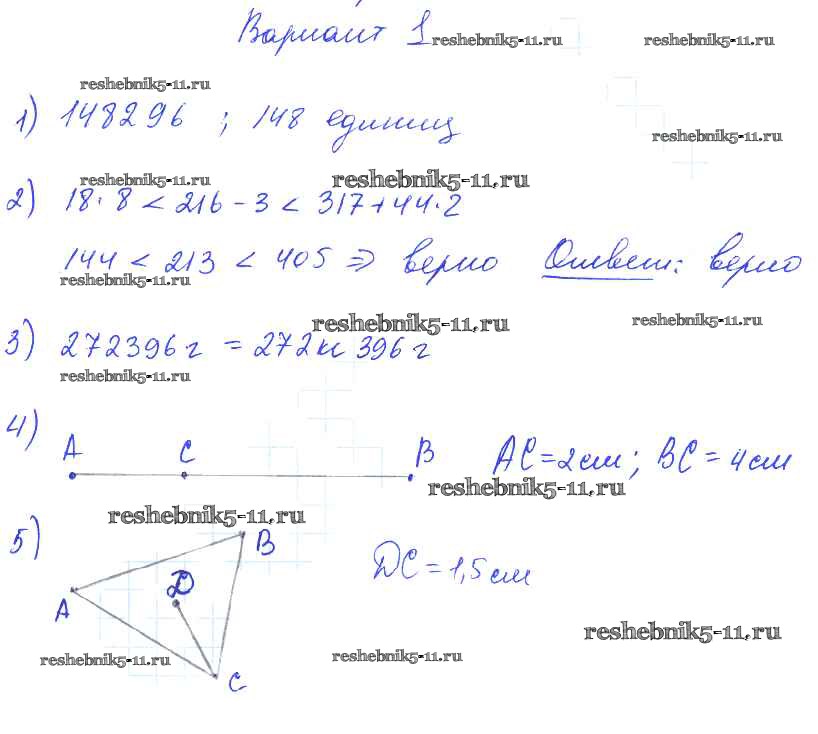 Вариант 1 reshebnik5-11.ru reshebnik5-11.ru
reshebnik5-11.ru
1) 148296 ; 148 единиц
reshebnik5-11.ru
reshebnik5-11.ru reshebnik5-11.ru
2) 18·8 < 216-3 < 317+44·2
144 < 213 < 405 => верно Ответ: верно
reshebnik5-11.ru
reshebnik5-11.ru reshebnik5-11.ru
3) 272396 г = 272 кг 396 г
reshebnik5-11.ru
4) A C B AC=2см; BC=4см
reshebnik5-11.ru
reshebnik5-11.ru
5) A B D C DC=1,5см
reshebnik5-11.ru
reshebnik5-11.ru reshebnik5-11.ru